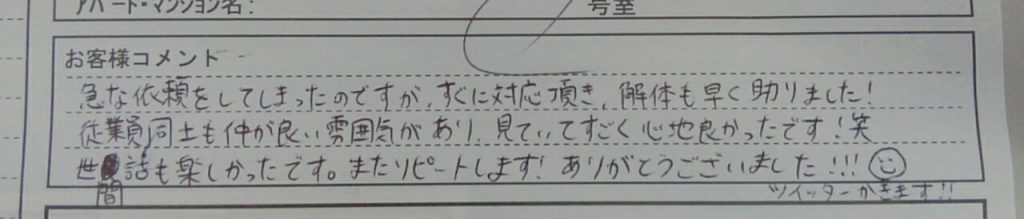 アパート・マンション名: 号室
お客様コメント
急な依頼をしてしまったのですが、すぐに対応頂き、解体も早く助りました!
従業員同士も仲が良い雰囲気があり、見ていてすごく心地良かったです!笑
世間話も楽しかったです。またリピートします! ありがとうございました!!!
ツイッターかきます!!